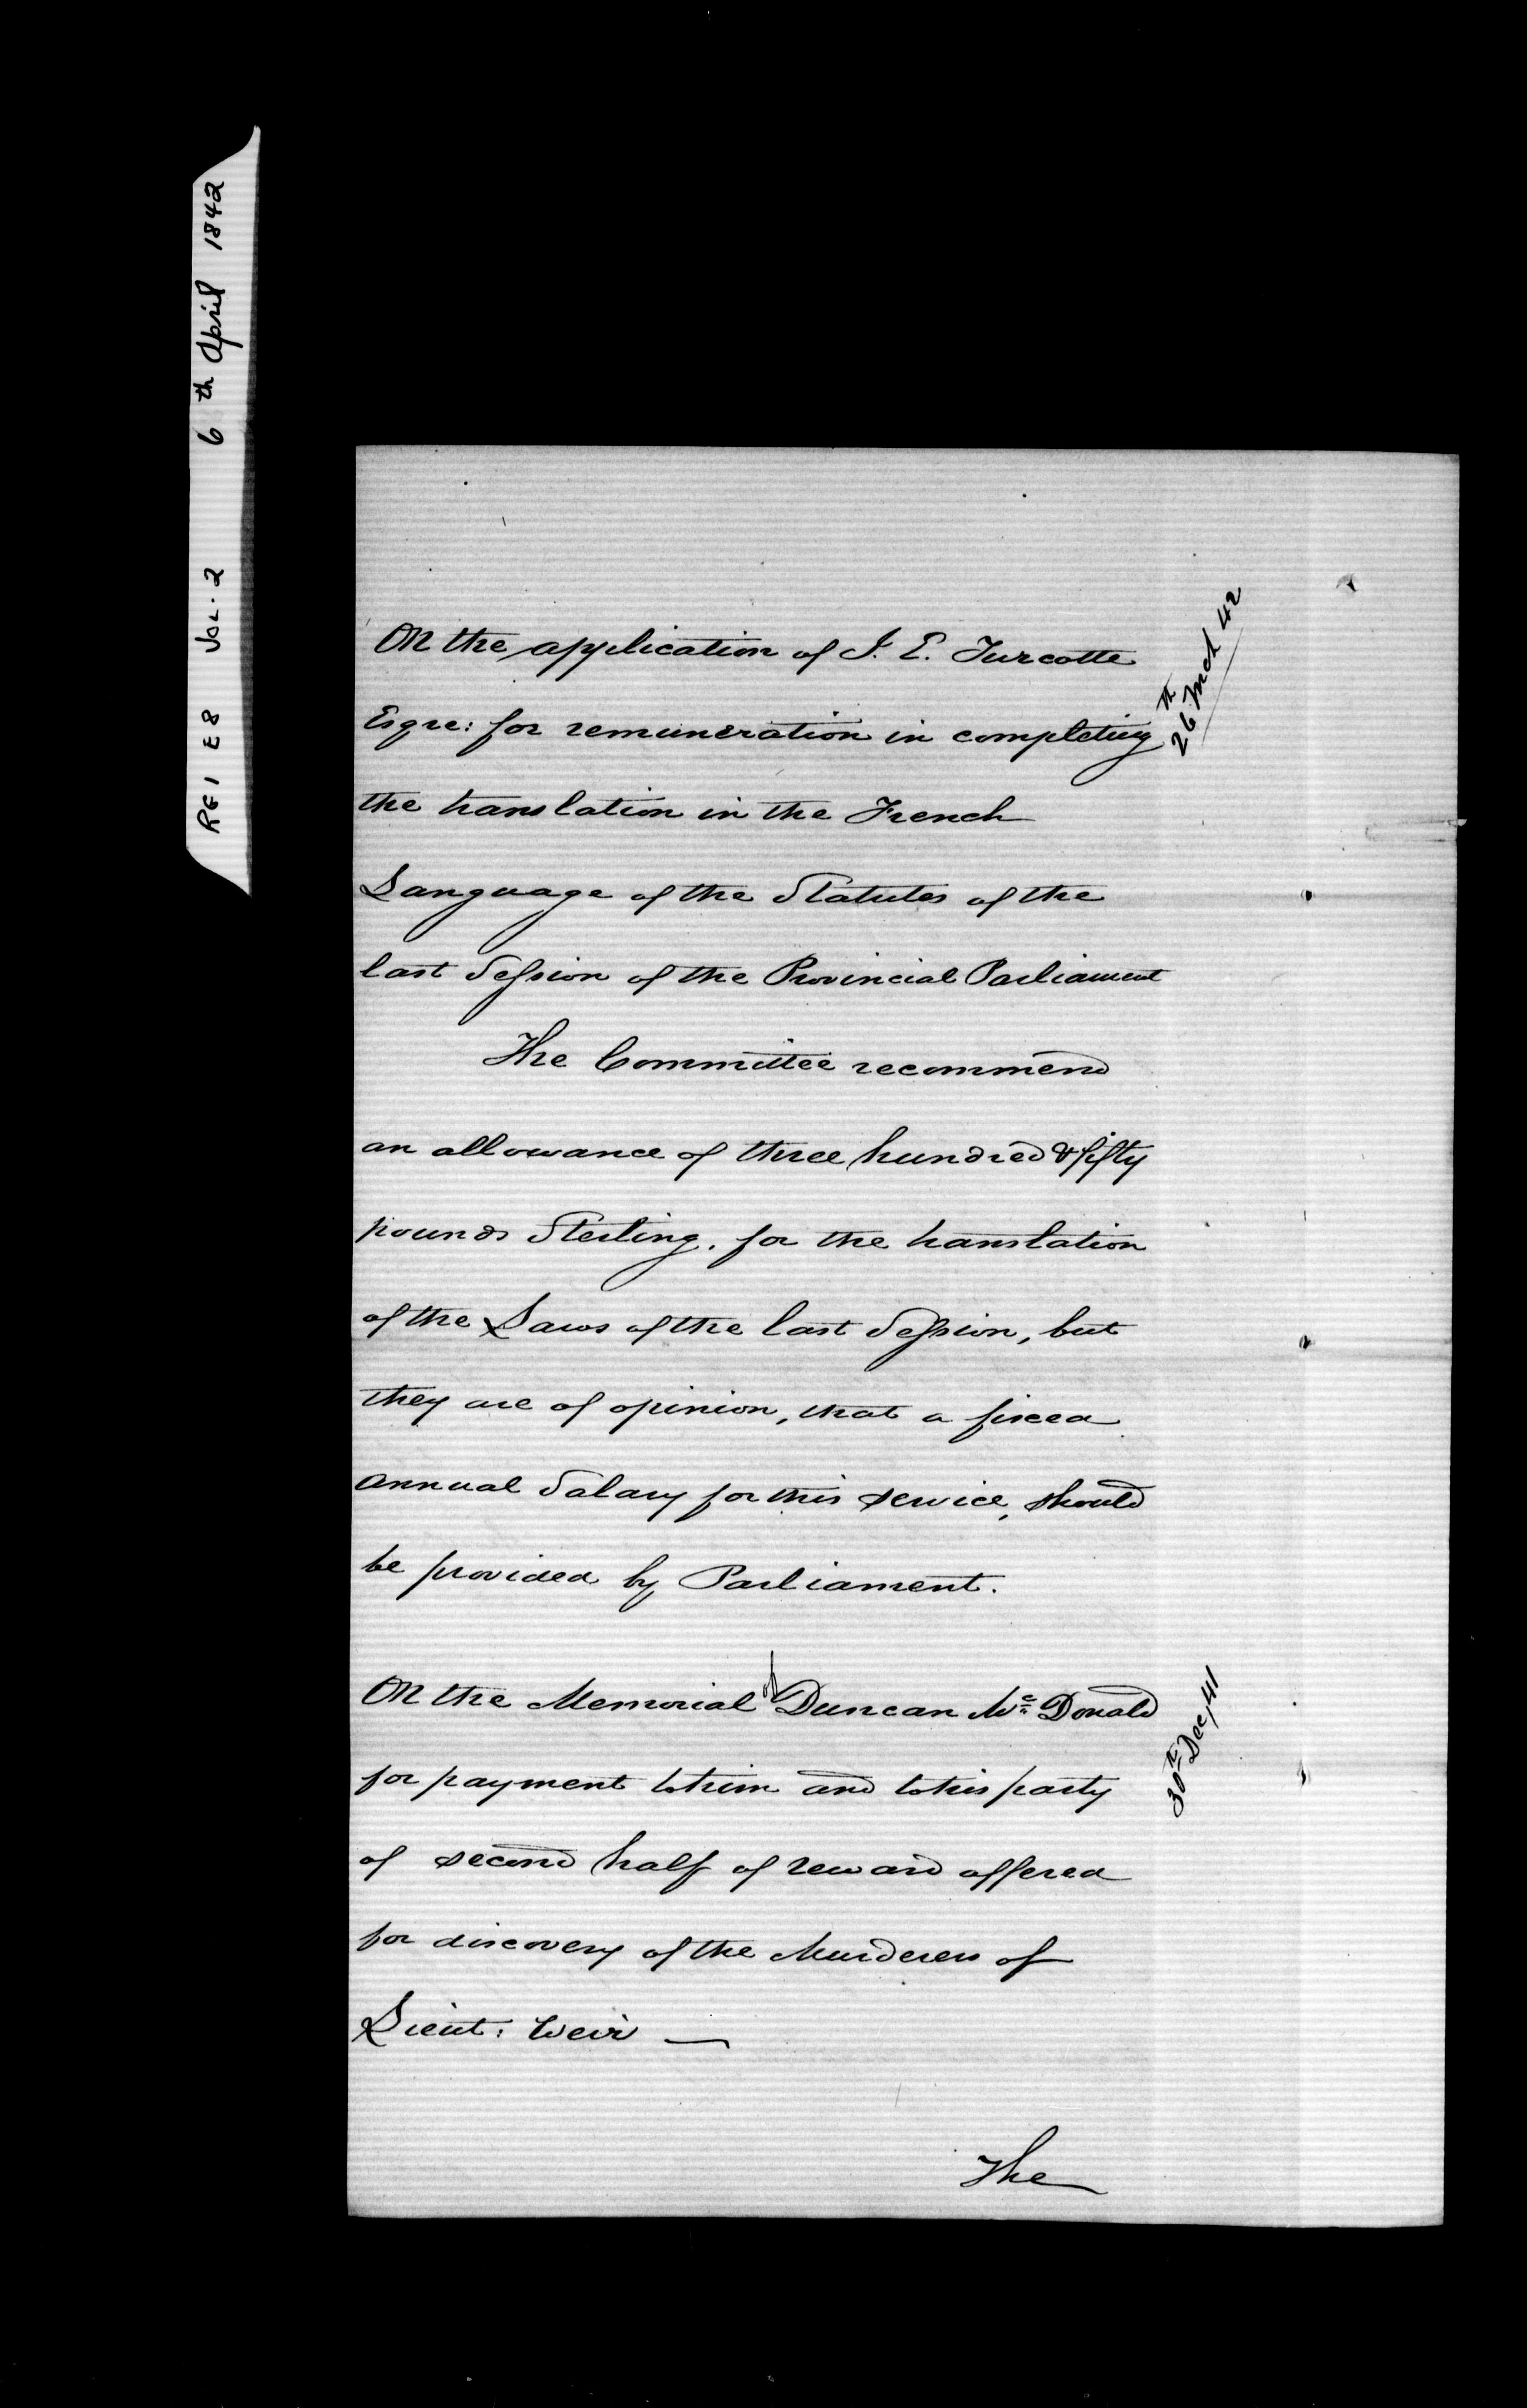 RG1 E8 VOL. 2 6th April 1842
On the application of J. E. Turcotte
Esqre: for remuneration in completing
26th Mch 42
the translation in the French
Language of the Statutes of the
last Session of the Provincial Parliament
The Committee recommend
an allowance of three hundred & fifty
pounds Sterling. for the translation
of the Laws of the last Session, but
they are of opinion, that a fixed
annual Salary for this service, should
be provided by Parliament.
On the Memorial of Duncan Mc Donald
30th Dec, 41
for payment to him and to his party
of second half of reward offered
for discovery of the Murderers of
Lieut: Weir —
The